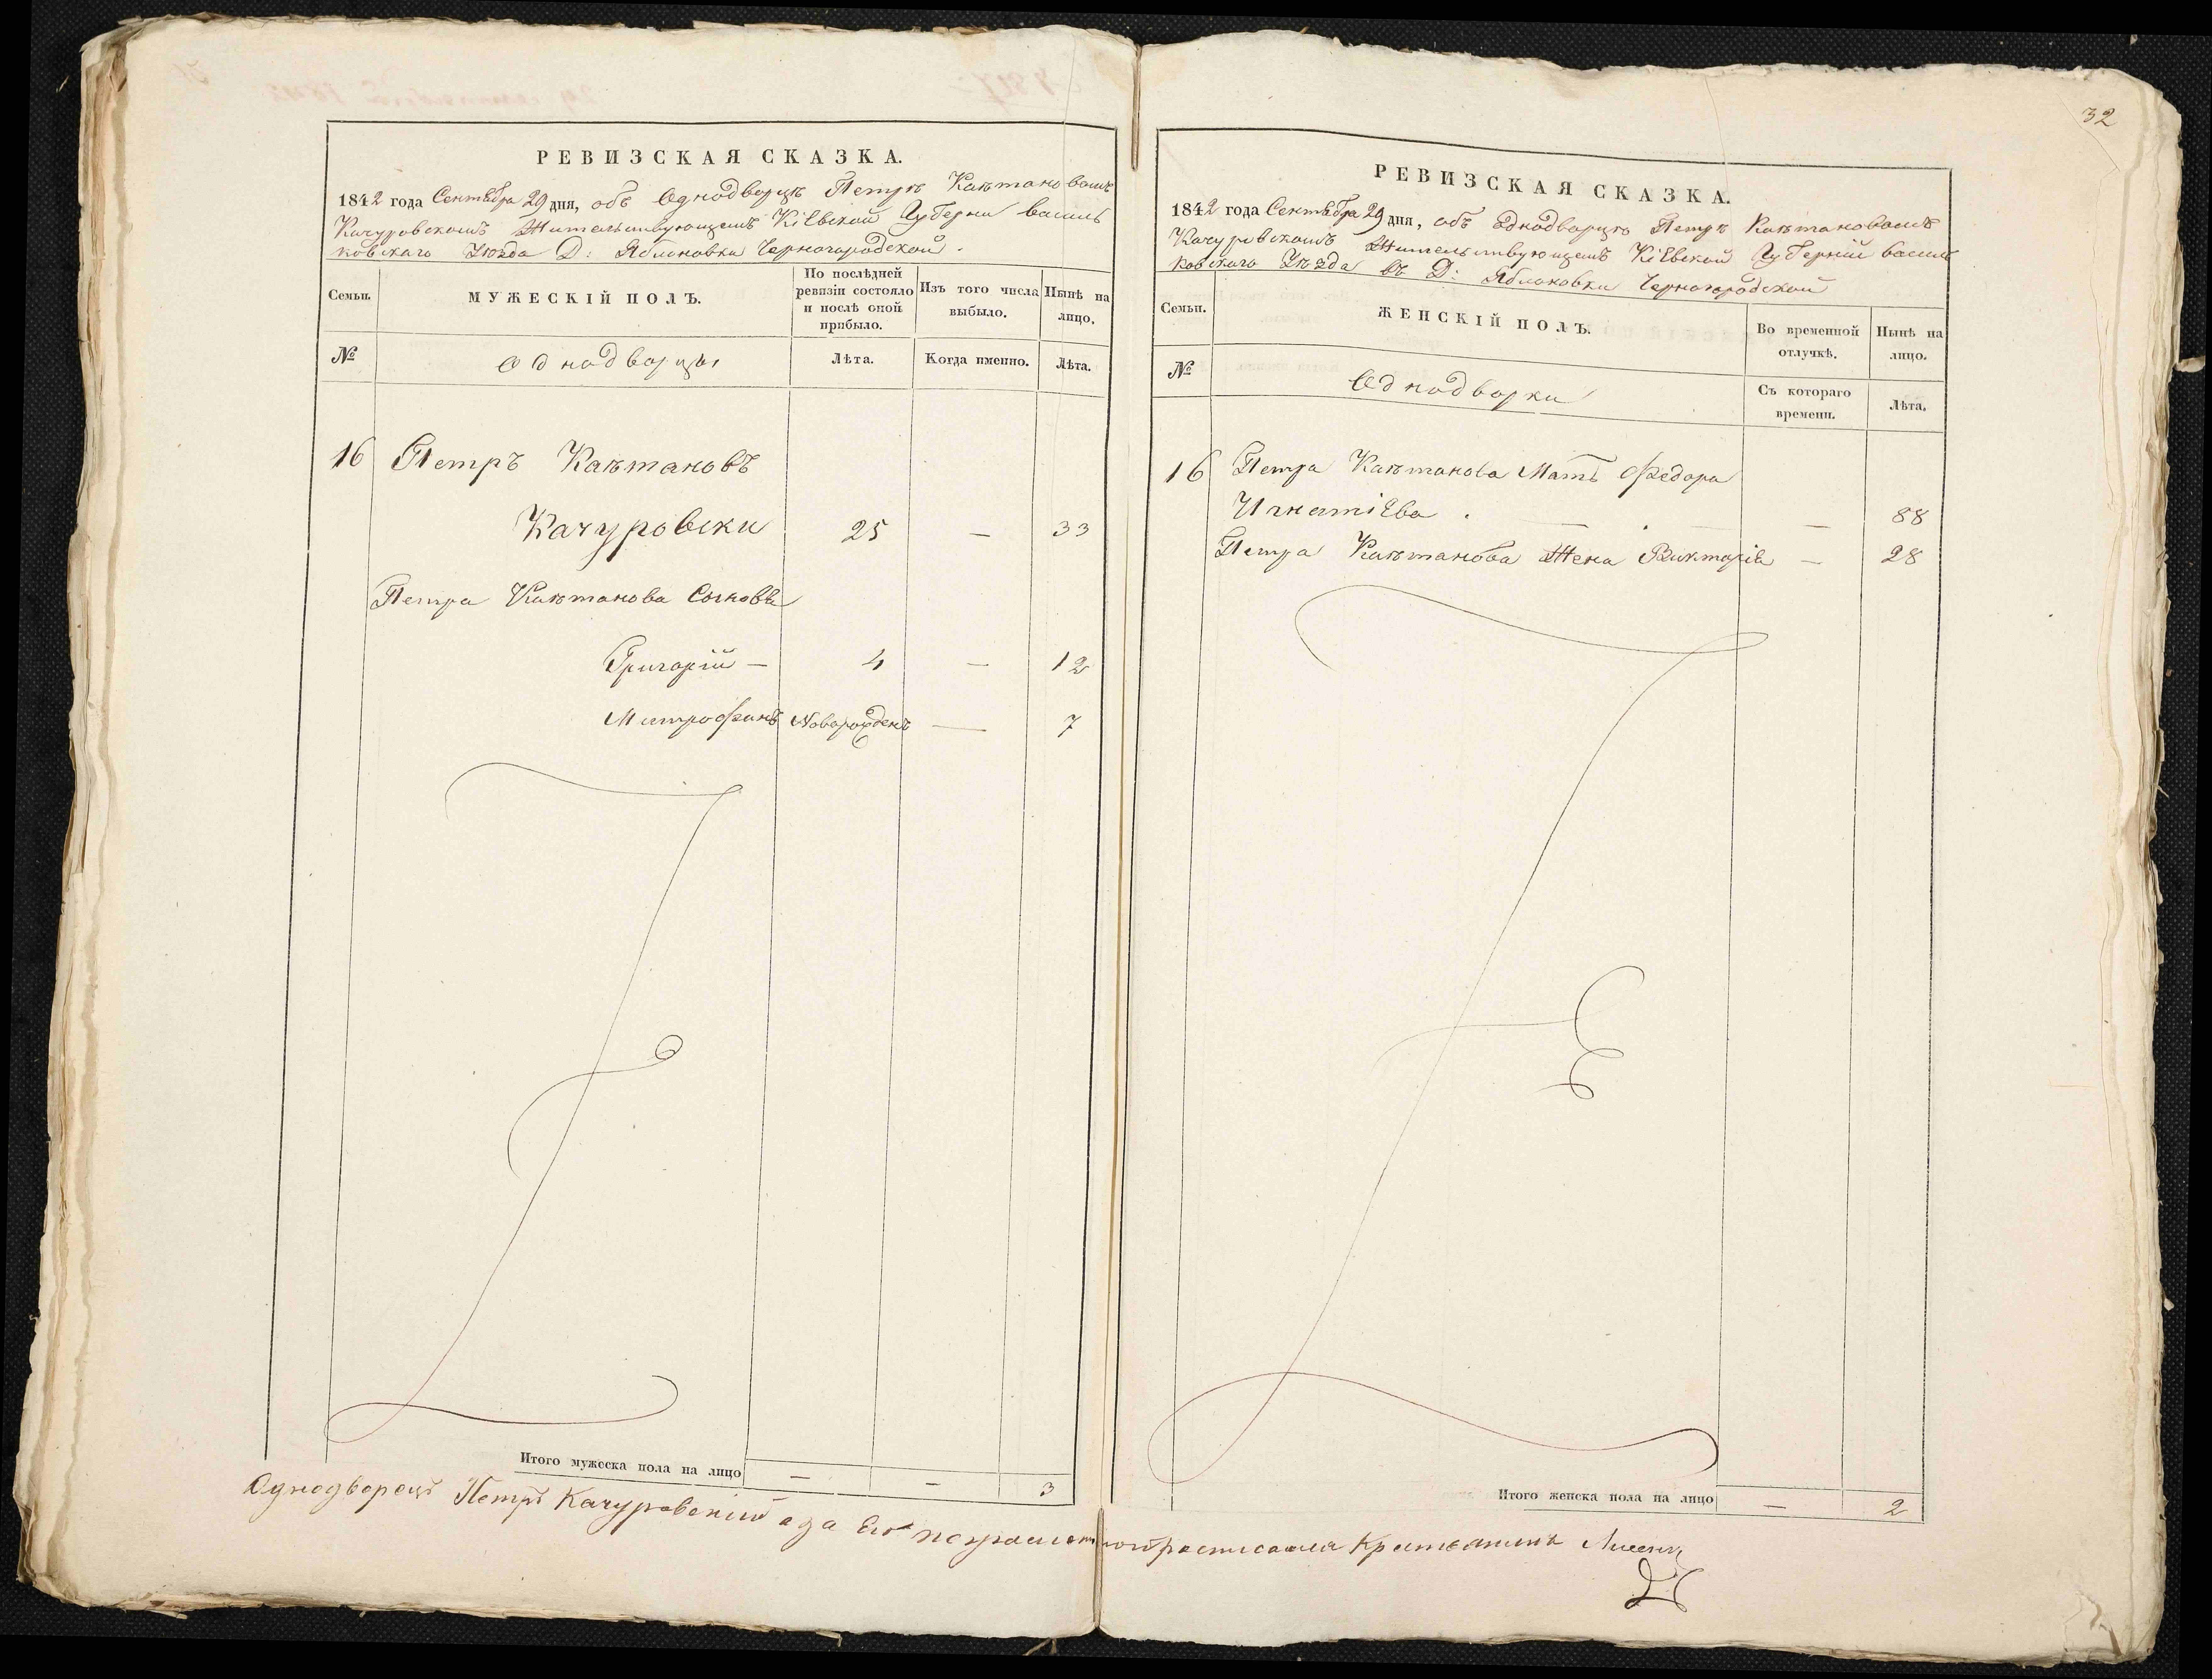 32
РЕВИЗСКАЯ СКАЗКА.
1842 года Сентября 29 дня, объ Однодворцѣ Петрѣ Каѣтановомъ
Качуровскомъ Жительствующемъ Кіевской Губерни василь
ковскаго Уѣзда Д: Яблоновки Черногородской.
Семьи.
МУЖЕСКІЙ ПОЛЪ.
По послѣдней
ревизіи состояло
и послѣ оной
прибыло.
Изъ того числа
выбыло.
Нынѣ на
лицо.
№
Однодворцы
Лѣта.
Когда именно.
Лѣта.
16 Петръ Каѣтановъ
Качуровски 25 — 33
Петра Каѣтанова Сыновья
Григорій — 4 — 12
Митрофанъ Новорожденъ — 7
Итого мужеска пола на лицо — — 3
РЕВИЗСКАЯ СКАЗКА.
1842 года Сентября 29 дня, объ Однодворцѣ Петрѣ Каѣтановомъ
Качуровскомъ Жительствующемъ Кіевской Губерніи василь
ковскаго Уѣзда въ Д: Яблоновки Черногородской
Семьи.
ЖЕНСКІЙ ПОЛЪ.
Во временной
отлучкѣ.
Нынѣ на
лицо.
№
Однодворки
Съ котораго
времени.
Лѣта.
16 Петра Каѣтанова Мать Федора
Игнатіева . — 88
Петра Каѣтанова Жена Викторія — 28
Итого женска пола на лицо — 2
Однодворецъ Петръ Качуровскій а за Его